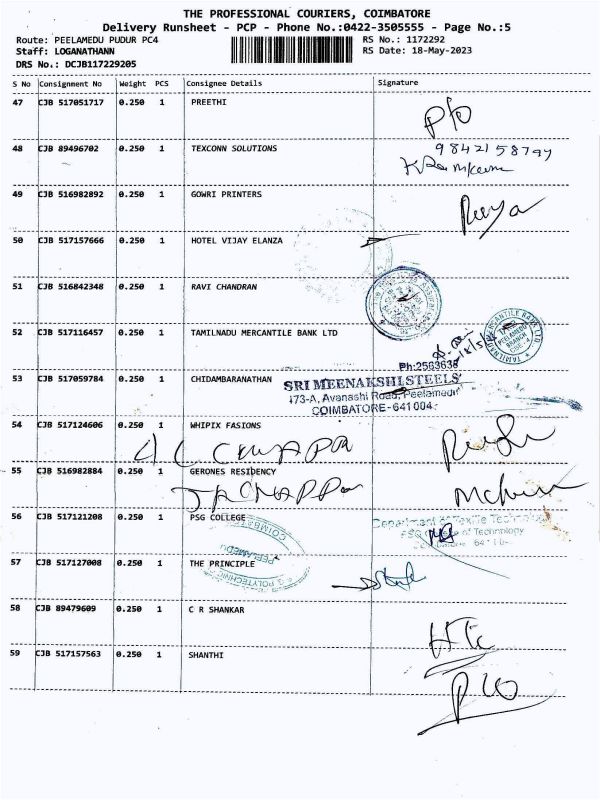 THE PROFESSIONAL COURIERS, COIMBATORE
Delivery Runsheet - PCP - Phone No.:0422-3505555 - Page No.:5
Route: PEELAMEDU PUDUR PC4 RS No.: 1172292
Staff: LOGANATHANN RS Date: 18-May-2023
DRS No.: DCJB117229205
S No Consignment No Weight PCS Consignee Details Signature
47 CJB 517051717 0.250 1 PREETHI
P/o
48 CJB 89496702 0.250 1 TEXCONN SOLUTIONS
49 CJB 516982892 0.250 1 GOWRI PRINTERS
50 CJB 517157666 0.250 1 HOTEL VIJAY ELANZA
51 CJB 516842348 0.250 1 RAVI CHANDRAN
52 CJB 517116457 0.250 1 TAMILNADU MERCANTILE BANK LTD
TAMILNADU MERCANTILE BANK LTD
PEELAMEDU
BRANCH
53 CJB 517059784 0.250 1 CHIDAMBARANATHAN
SRI MEENAKSHI STEELS
173-A, Avanashi Road, Peelamedu
COIMBATORE-641 004
54 CJB 517124606 0.250 1 WHIPIX FASIONS
55 CJB 516982884 0.250 1 GERONES RESIDENCY
56 CJB 517121208 0.250 1 PSG COLLEGE
Department of Textile Technology
PSG College of Technology
57 CJB 517127008 0.250 1 THE PRINCIPLE
58 CJB 89479609 0.250 1 C R SHANKAR
59 CJB 517157563 0.250 1 SHANTHI
P/O